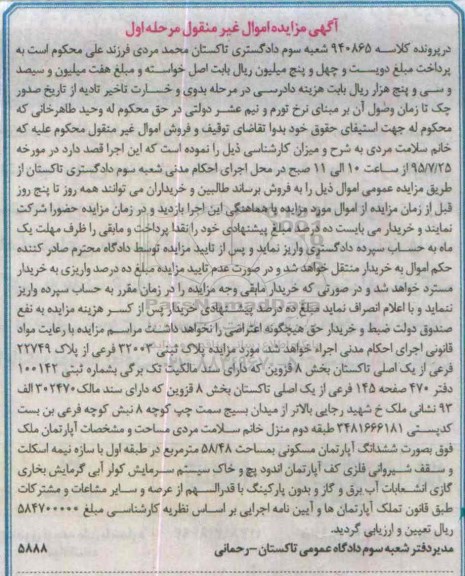 آگهی مزایده اموال غیر منقول مرحله اول
درپرونده کلاسه ۹۴۰۸۶۵ شعبه سوم دادگستری تاکستان محمد مردی فرزند علی محکوم است به
پرداخت مبلغ دویست و چهل و پنج میلیون ریال بابت اصل خواسته و مبلغ هفت میلیون و سیصد
و سی و پنج هزار ریال بابت هزینه دادرسی در مرحله بدوی و خسارت تاخیر تادیه از تاریخ صدور
چک تا زمان وصول آن بر مبنای نرخ تورم و نیم عشر دولتی در حق محکوم له وحید طاهرخانی که
محکوم له جهت استیفای حقوق خود بدوا تقاضای توقیف و فروش اموال غیر منقول محکوم علیه که
خانم سلامت مردی به شرح و میزان کارشناسی ذیل را نموده است که این اجرا قصد دارد در مورخه
۹۵/۷/۲۵ از ساعت ۱۰ الی ۱۱ صبح در محل اجرای احکام مدنی شعبه سوم دادگستری تاکستان از
طریق مزایده عمومی اموال ذیل را به فروش برساند طالبین و خریداران می توانند همه روز تا پنج روز
قبل از زمان مزایده از اموال مورد مزایده با هماهنگی این اجرا بازدید و در زمان مزایده حضورا شرکت
نمایند و خریدار می بایست ده درصد مبلغ پیشنهادی خود را نقدا پرداخت و مابقی را ظرف مهلت یک
ماه به حساب سپرده دادگستری واریز نماید و پس از تایید مزایده توسط دادگاه محترم صادر کننده
حکم اموال به خریدار منتقل خواهد شد و در صورت عدم تایید مزایده مبلغ ده درصد واریزی به خریدار
مسترد خواهد شد و در صورتی که خریدار مابقی وجه مزایده را در زمان مقرر به حساب سپرده واریز
ننماید و با اعلام انصراف نماید مبلغ ده درصد پیشنهادی خریدار پس از کسر هزینه مزایده به نفع
صندوق دولت ضبط و خریدار حق هیچگونه اعتراضی را نخواهد داشت مراسم مزایده با رعایت مواد
قانونی اجرای احکام مدنی اجراء خواهد شد، مورد مزایده پلاک ثبتی ۳۲۰۰۳ فرعی از پلاک ۲۲۷۴۹
فرعی از یک اصلی تاکستان بخش ۸ قزوین که دارای سند مالکیت تک برگی بشماره ثبتی ۱۰۰۱۴۲
دفتر ۴۷۰ صفحه ۱۴۵ فرعی از یک اصلی تاکستان بخش ۸ قزوین که دارای سند مالک ۳۰۲۴۷۰ الف
۹۳ نشانی ملک خ شهید رجایی بالاتر از میدان بسیج سمت چپ کوچه ۸ نبش کوچه فرعی بن بست
کدپستی ۳۴۸۱۶۶۶۱۸۱ طبقه دوم منزل خانم سلامت مردی مساحت و مشخصات آپارتمان ملک
فوق بصورت ششدانگ آپارتمان مسکونی بمساحت ۵۸/۴۸ مترمربع در طبقه اول با سازه نیمه اسکلت
و سقف شیروانی فلزی کف آپارتمان اندود پچ و خاک سیستم سرمایش کولر آبی گرمایش بخاری
گازی انشعابات آب برق و گاز و بدون پارکینگ با قدرالسهم از عرصه و سایر مشاعات و مشترکات
طبق قانون تملک آپارتمان ها و آیین نامه اجرایی بر اساس نظریه کارشناسی مبلغ ۵۸۴۷۰۰۰۰۰
ریال تعیین و ارزیابی گردید.
مدیر دفتر شعبه سوم دادگاه عمومی تاکستان – رحمانی ۵۸۸۸